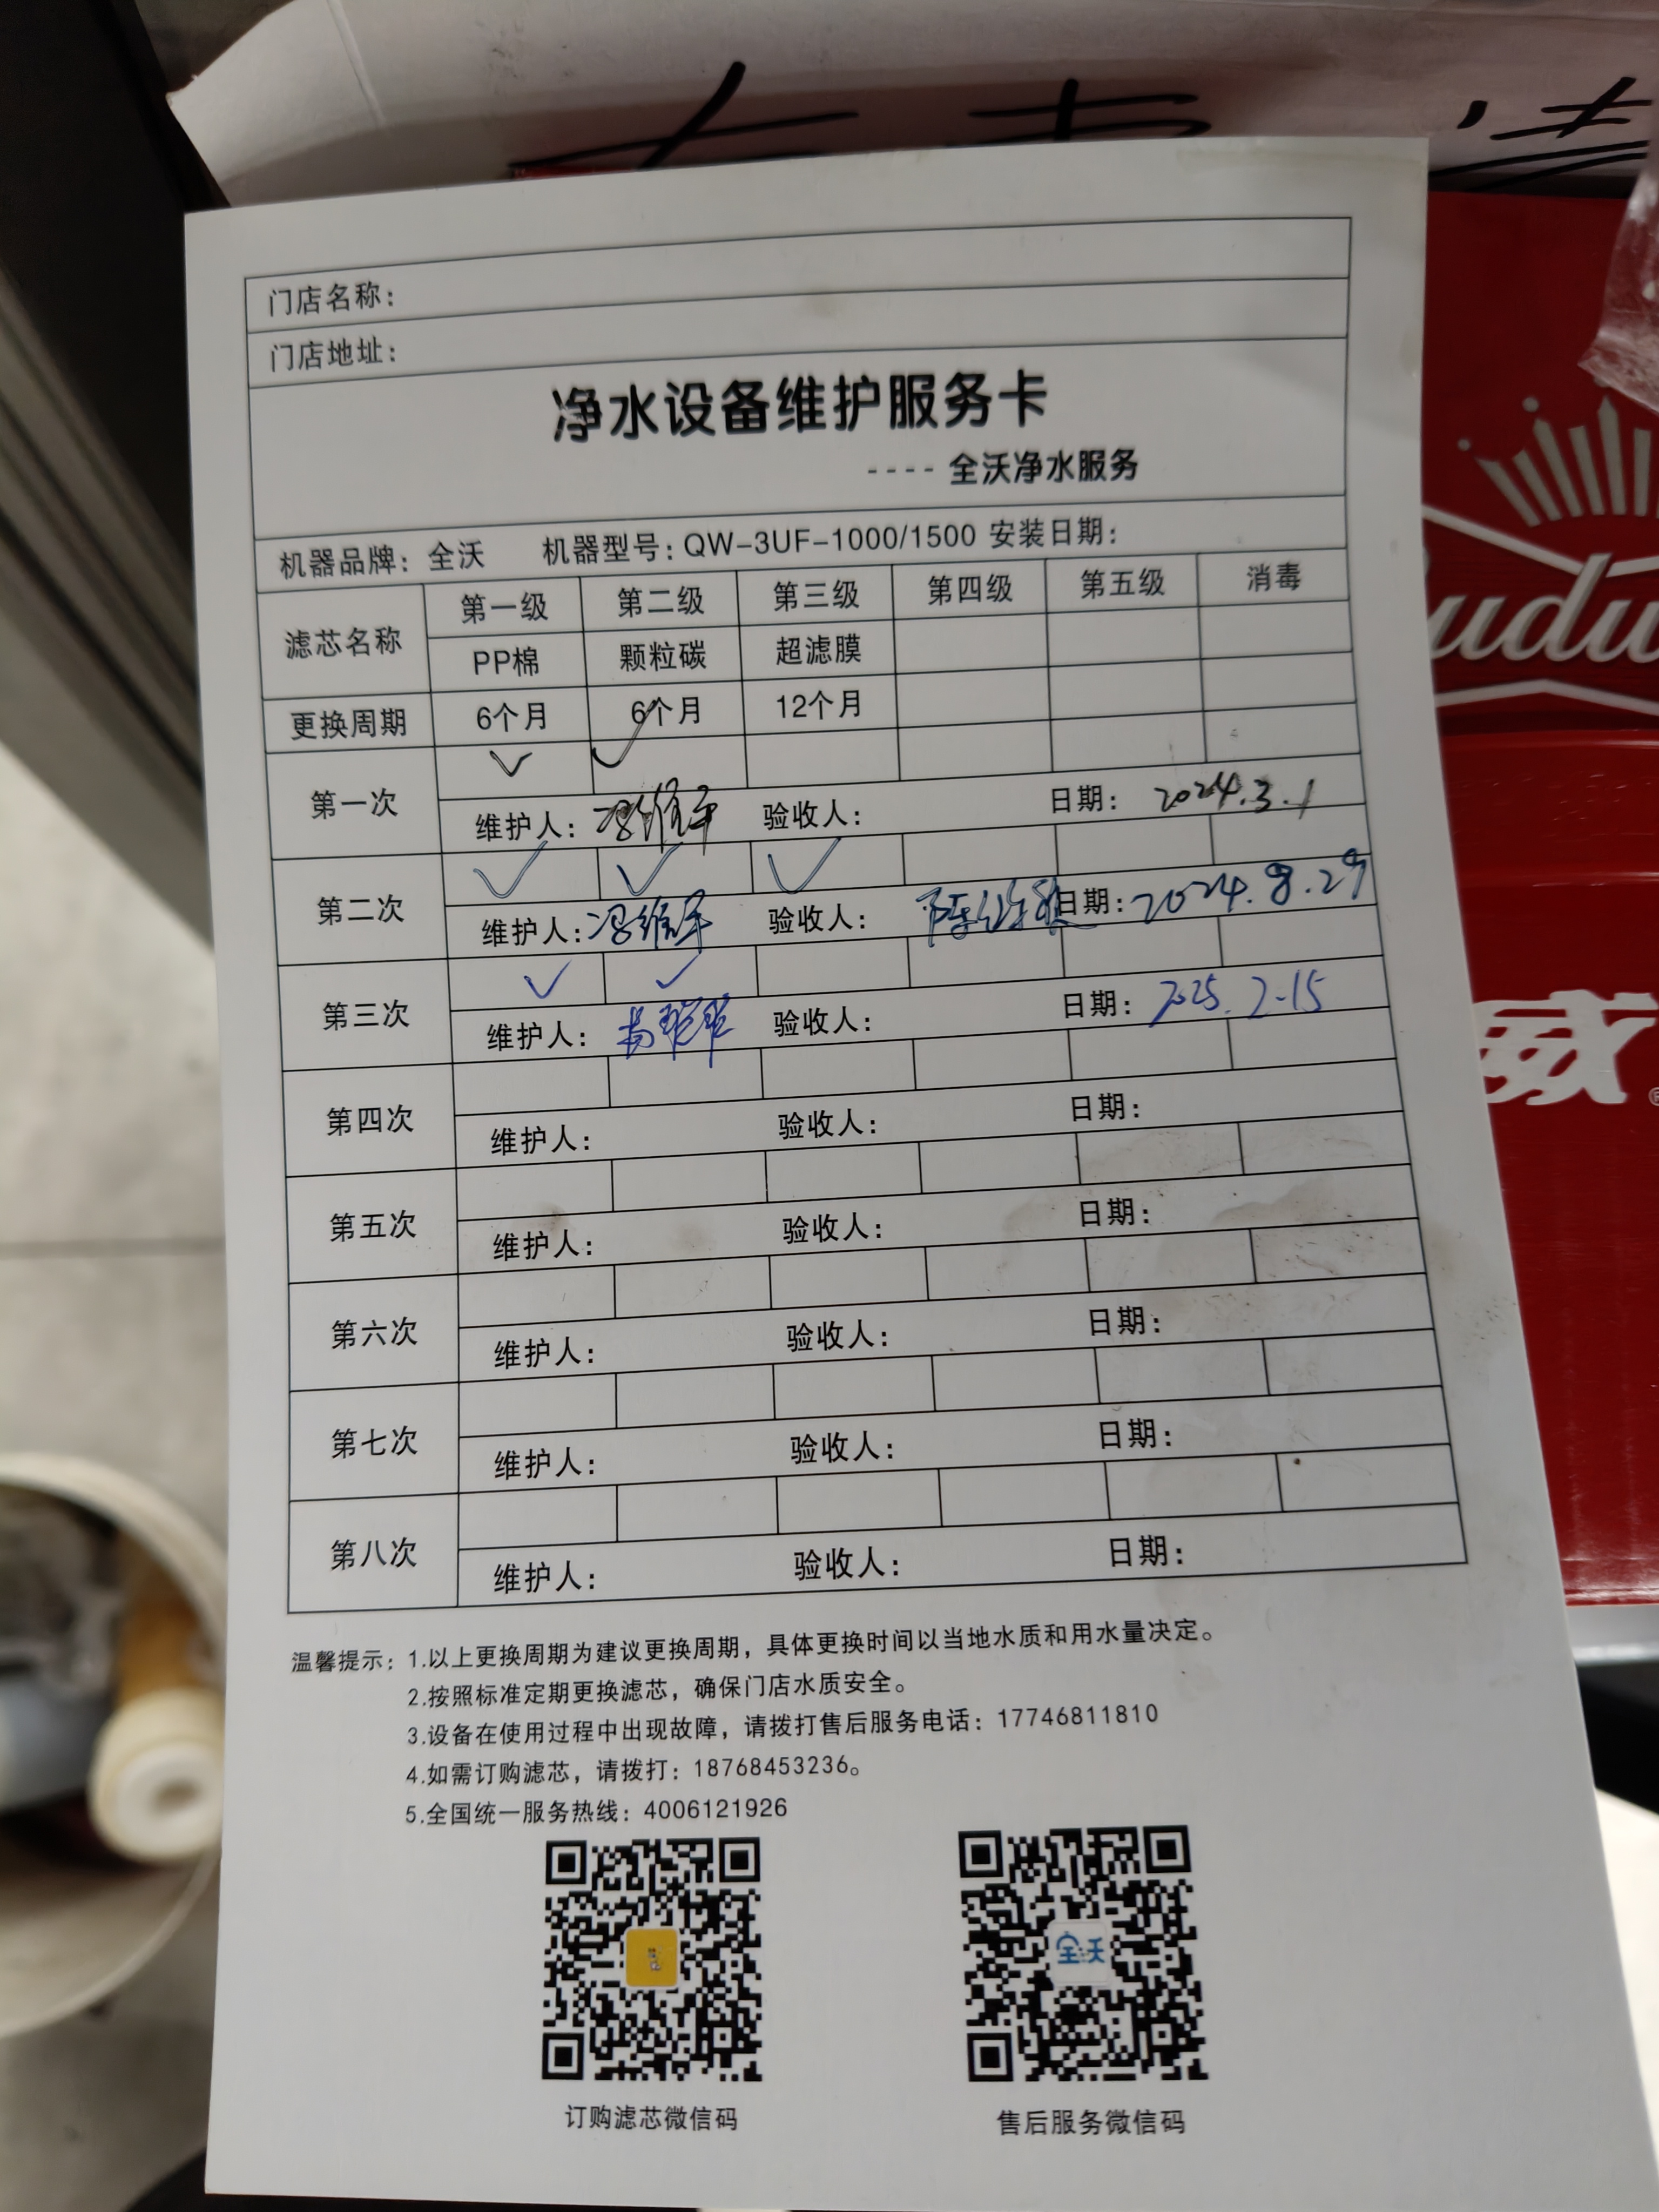 门店名称：
门店地址：
净水设备维护服务卡
---- 全沃净水服务
机器品牌：全沃 机器型号：QW-3UF-1000/1500 安装日期：
滤芯名称 第一级 第二级 第三级 第四级 第五级 消毒
PP棉 颗粒碳 超滤膜
更换周期 6个月 6个月 12个月
第一次 ✓ ✓
维护人：冯维平 验收人： 日期：2024.3.1
第二次 ✓ ✓ ✓
维护人：冯维平 验收人： 日期：2024.8.29
第三次 ✓ ✓
维护人： 验收人： 日期：2025.2.15
第四次
维护人： 验收人： 日期：
第五次
维护人： 验收人： 日期：
第六次
维护人： 验收人： 日期：
第七次
维护人： 验收人： 日期：
第八次
维护人： 验收人： 日期：
温馨提示：1.以上更换周期为建议更换周期，具体更换时间以当地水质和用水量决定。
2.按照标准定期更换滤芯，确保门店水质安全。
3.设备在使用过程中出现故障，请拨打售后服务电话：17746811810
4.如需订购滤芯，请拨打：18768453236。
5.全国统一服务热线：4006121926
全沃
订购滤芯微信码 售后服务微信码
威